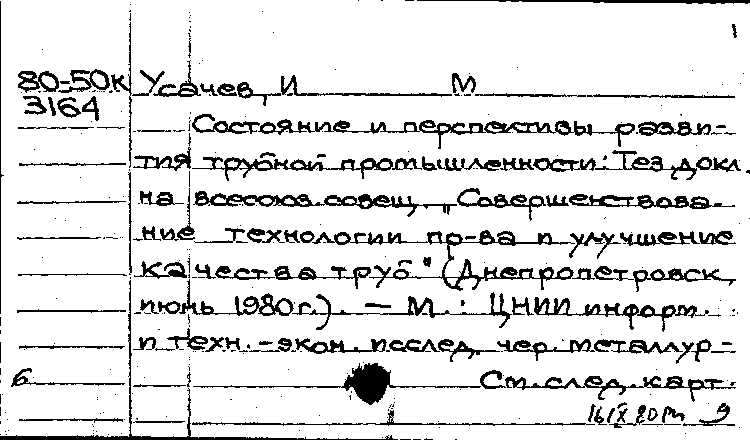 1
80-50к Усачев, И М
3164
Состояние и перспективы разви-
тия трубной промышленности: Тез. докл.
на всесоюз. совещ. „Совершенствова-
ние технологии пр-ва и улучшение
качества труб" (Днепропетровск,
июнь 1980г.). — М.: ЦНИИ информ.
и техн.-экон. исслед. чер. металлур-
б См. след. карт.
16 IX 80 9